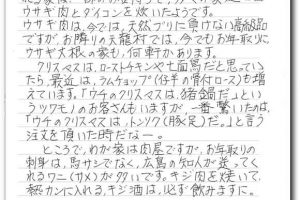 ウサギ肉とダイコンを炊いたようです。
ウサギ肉は、今では、天然ブリに負けない高級品
ですが、お隣りの天龍村では、今でもお年取りに
ウサギ大根の家も、何軒かあります。
クリスマスは、ローストチキンや七面鳥だと思ってい
たら、最近は、ラムチョップ(仔羊の骨付ロース)も増
えています。「ウチのクリスマスは、猪鍋だ。」とい
うツワモノのお客さんもいますが、一番驚いたのは、
「ウチのクリスマスは、トンソク(豚足)だ。」と言う
注文を頂いた時だなー。
ところで、わが家は肉屋ですが、お年取りの
刺身は、馬サシでなく、広島の知人が送ってく
れるワニ(サメ)が多いです。キジ肉を焼いて、
熱カンに入れる、キジ酒は、必ず飲みますに。